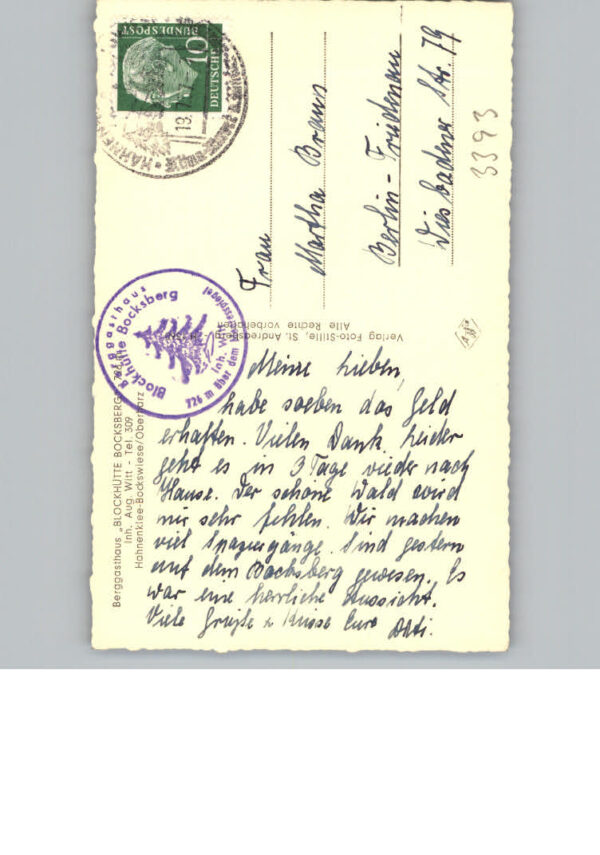 DEUTSCHE
BUNDESPOST
10
Frau
Martha Braun
Berlin-Friedenau
Wiesbadener Str. 79
3393
Berggasthaus
Blockhütte Bocksberg
726 m über dem Meeresspiegel
Verlag Foto-Stille, St. Andreasberg
Alle Rechte vorbehalten
Berggasthaus „BLOCKHÜTTE BOCKSBERG"
Inh. Aug. Witt - Tel. 309
Hahnenklee-Bockswiese/Oberharz
Meine Lieben,
habe soeben das Geld
erhalten. Vielen Dank. Leider
geht es in 3 Tage wieder nach
Hause. Der schöne Wald wird
mir sehr fehlen. Wir machen
viel Spaziergänge. Sind gestern
auf dem Bocksberg gewesen. Es
war eine herrliche Aussicht.
Viele Grüße u. Küsse Eure